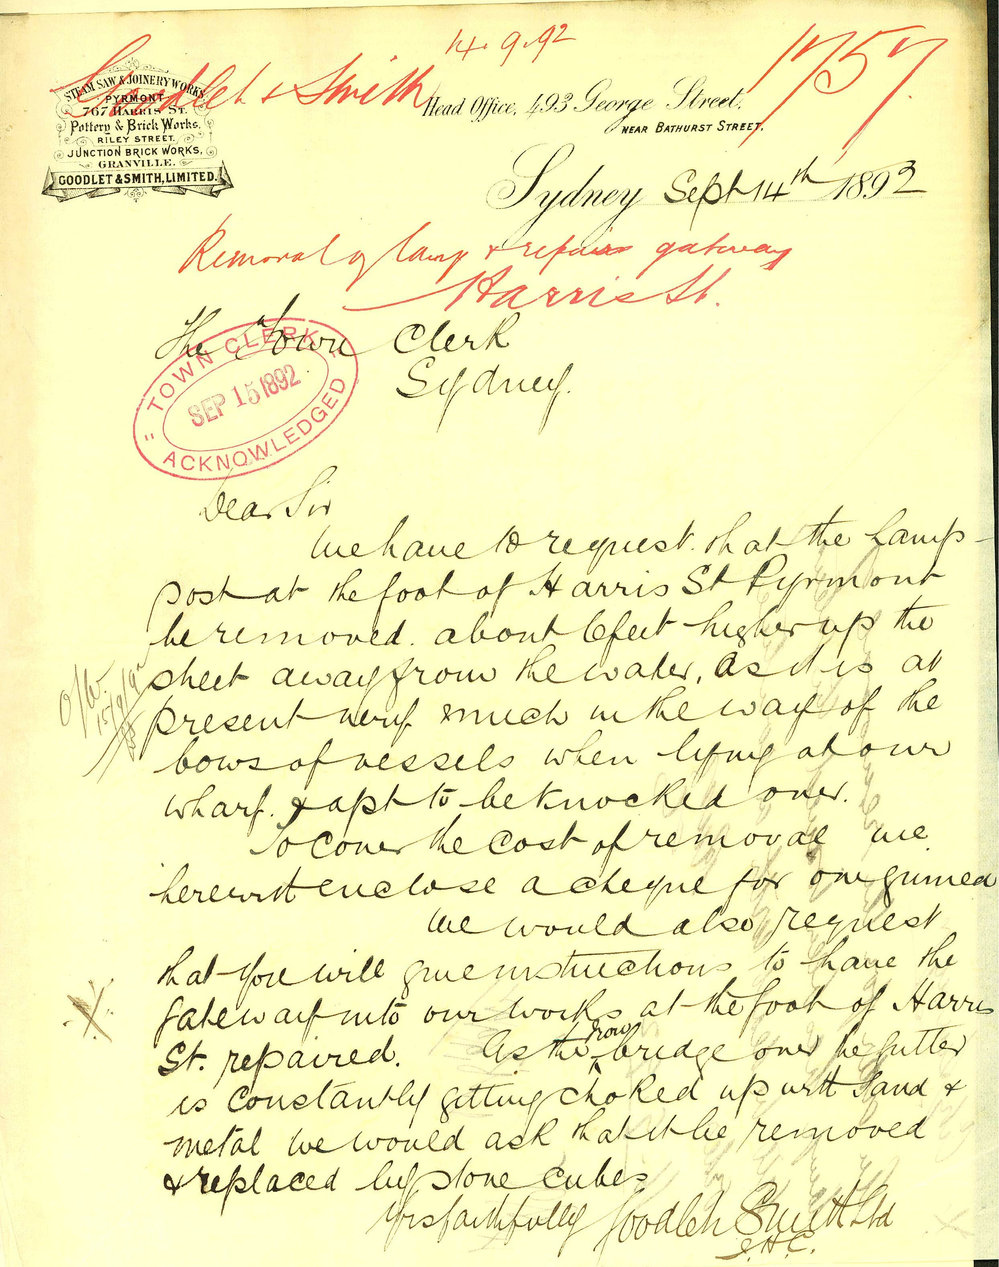 14.9.92
1757
Goodlet & Smith
STEAM SAW & JOINERY WORKS
PYRMONT
767 HARRIS ST.
Pottery & Brick Works.
RILEY STREET.
JUNCTION BRICK WORKS.
GRANVILLE.
GOODLET & SMITH, LIMITED.
Head Office, 493 George Street,
NEAR BATHURST STREET.
Sydney Sept 14th 1892
Removal of lamp & repairs gateway
Harris St.
The Town Clerk
Sydney.
TOWN CLERK
SEP 15 1892
ACKNOWLEDGED
Dear Sir
We have to request that the Lamp-
post at the foot of Harris St Pyrmont
be removed about 6 feet higher up the
street away from the water, as it is at
present very much in the way of the
bows of vessels when lying at our
wharf. & apt to be knocked over.
15/9/92
To cover the cost of removal we
herewith enclose a cheque for one guinea
We would also request
that you will give instructions to have the
gateway into our works at the foot of Harris
St. repaired. As the iron bridge over the gutter
is constantly getting choked up with sand &
metal we would ask that it be removed
& replaced by stone cubes
Yrs faithfully Goodlet & Smith Ltd